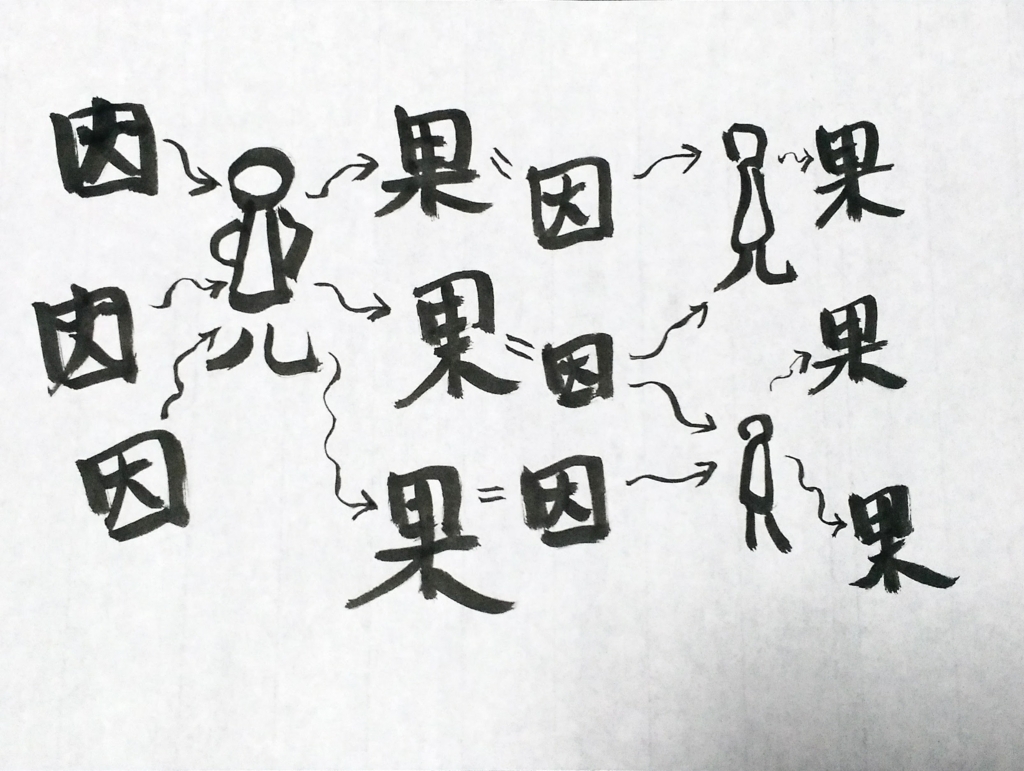 因 果 = 因 果
因 果 = 因 果
因 果 = 因 果